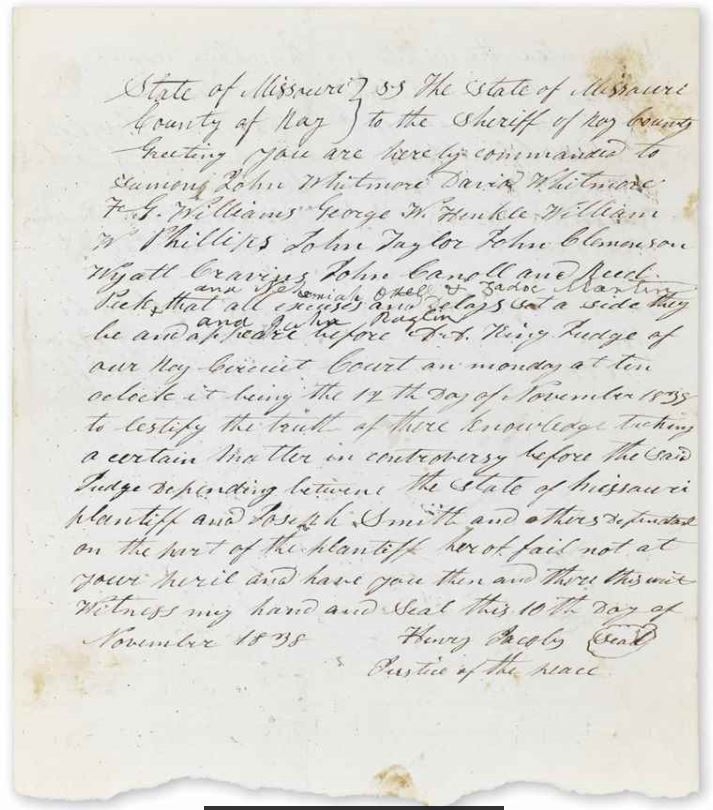 State of Missouri } ss The State of Missouri
County of Ray } to the Sheriff of Ray County
Greeting you are hereby commanded to
Sumons John Whitmore David Whitmore
F. G. Williams George W. Henkle William
W Phillips John Taylor John Clemonson
Wyatt Cravins John Canoll and Reed
and Nehemiah Odel & Zadoc Martin
Peck, that all excuses and Delays set a side they
and John Raglin
be and appeare before A. A. King Judge of
our Ray Circuit Court on monday at ten
oclock it being the 12th Day of November 1838
to testify the truth of there knowledge tuching
a certain matter in controversy before the said
Judge Depending betwene the State of missouri
plantiff and Joseph Smith and others Defendant
on the part of the plantiff herof fail not at
your peril and have you then and there this writ
Witness my hand and Seal this 10th Day of
November 1838 Henry Jacobs (Seal)
Justice of the peace